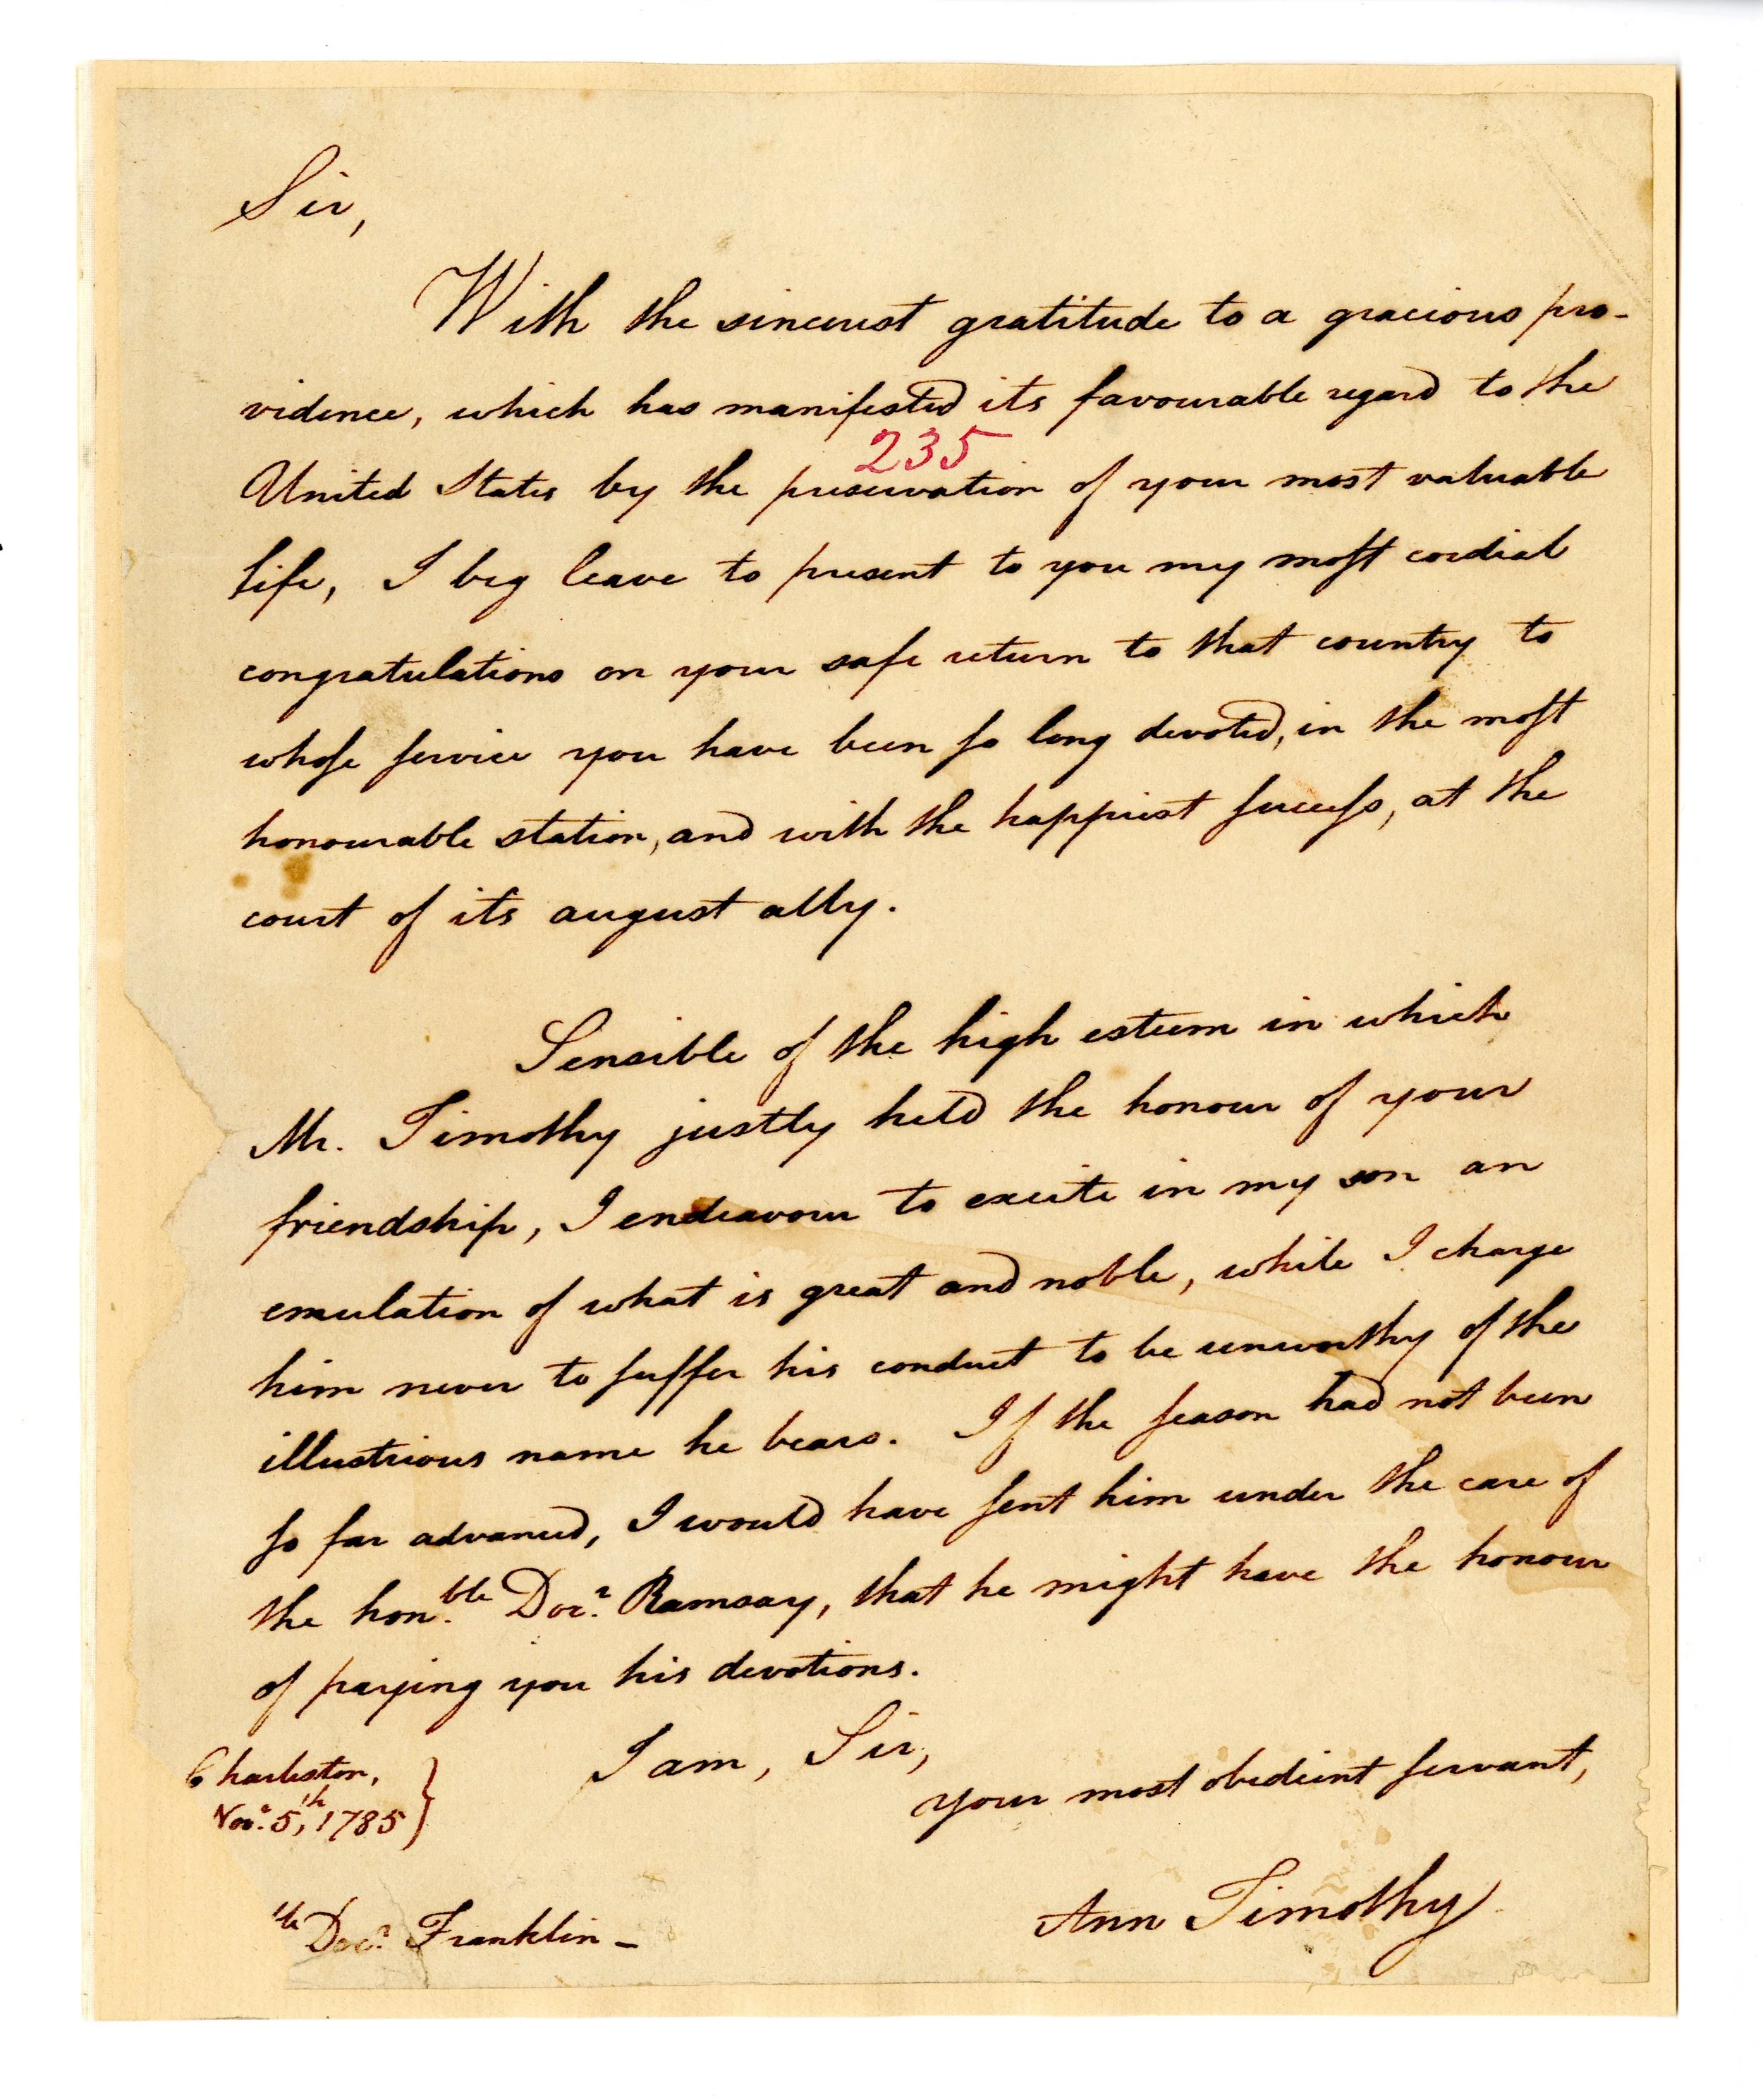 Sir,
With the sincerest gratitude to a gracious pro-
vidence, which has manifested its favourable regard to the
235
United States by the preservation of your most valuable
life, I beg leave to present to you my moſt cordial
congratulations on your safe return to that country to
whoſe ſervice you have been ſo long devoted, in the moſt
honourable station, and with the happiest ſucceſs, at the
court of its august ally.
Sensible of the high esteem in which
Mr. Timothy justly held the honour of your
friendship, I endeavour to excite in my son an
emulation of what is great and noble, while I charge
him never to ſuffer his conduct to be unworthy of the
illustrious name he bears. If the ſeason had not been
ſo far advanced, I would have ſent him under the care of
the hon.ble Docr. Ramsay, that he might have the honour
of paying you his devotions.
I am, Sir,
your most obedient ſervant,
Charleston,
Novr. 5th, 1785
Ann Timothy
ble Docr. Franklin –